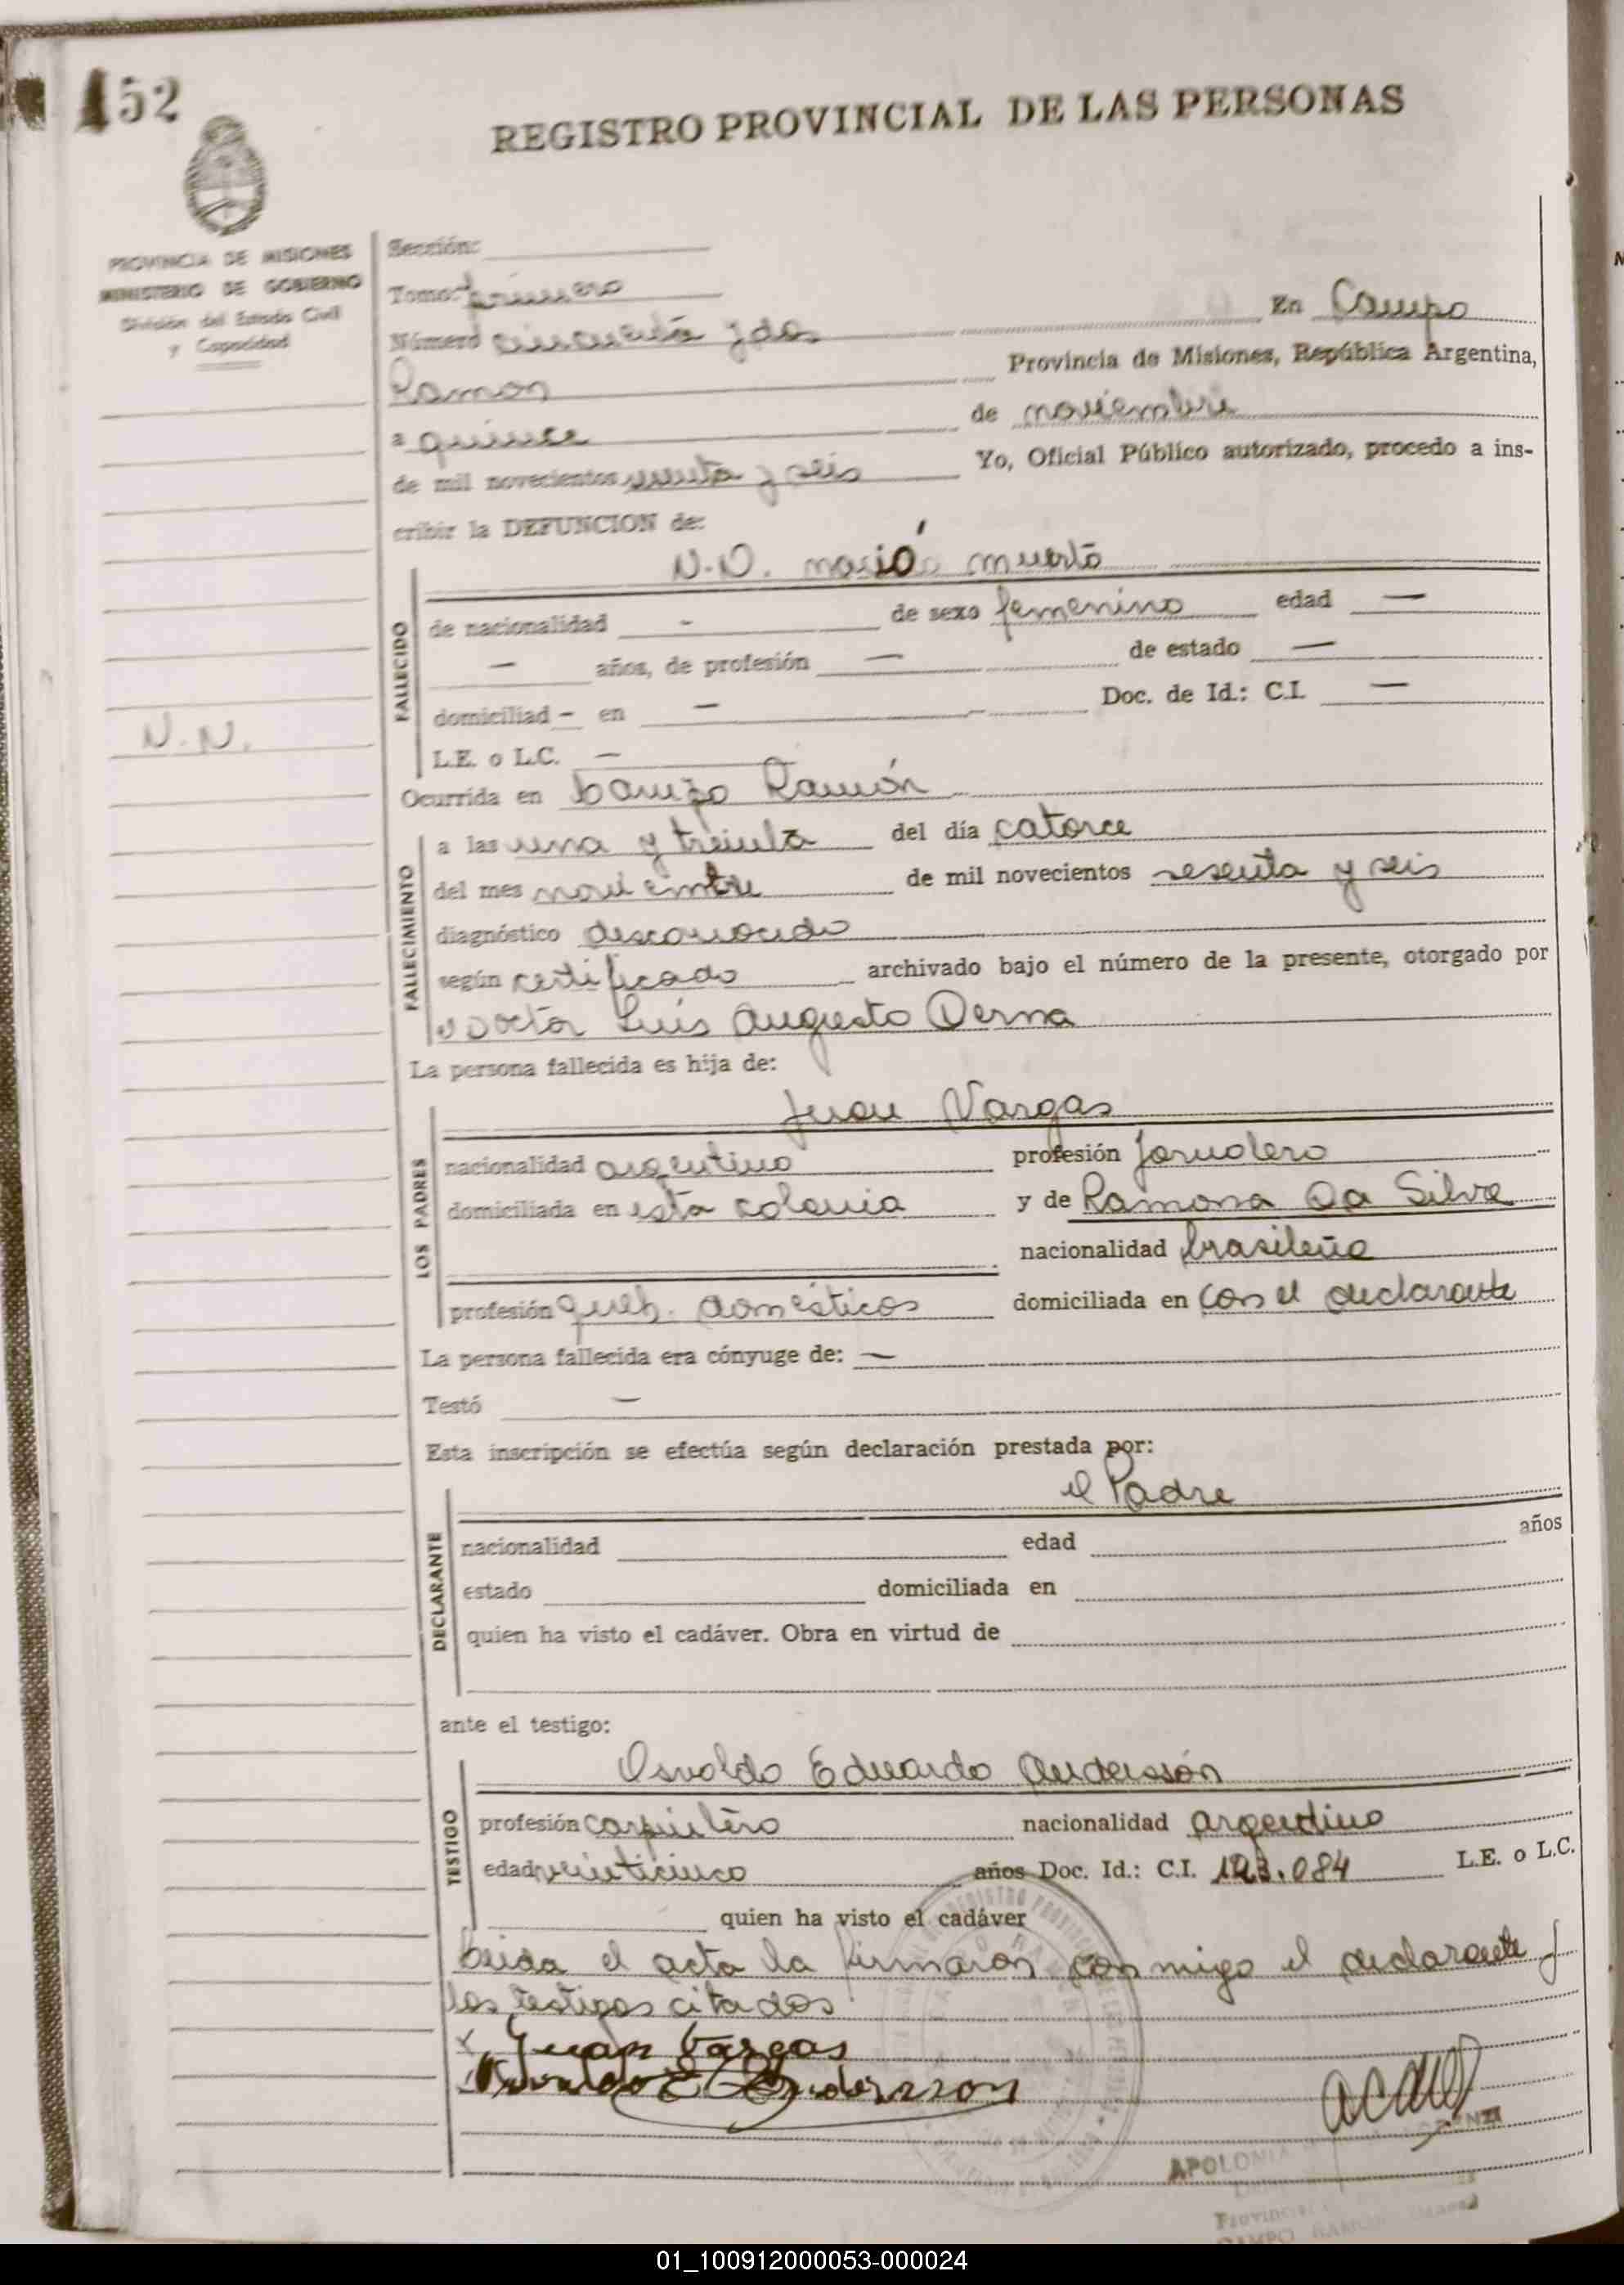 52
REGISTRO PROVINCIAL DE LAS PERSONAS
PROVINCIA DE MISIONES
MINISTERIO DE GOBIERNO
División del Estado Civil
y Capacidad
N.N.
Sección:
Tomo: primero
Número cincuenta y dos En Campo
Ramon Provincia de Misiones, República Argentina,
a quince de noviembre
de mil novecientos y seis Yo, Oficial Público autorizado, procedo a ins-
cribir la DEFUNCION de:
N.N. nació muerto
FALLECIDO
de nacionalidad - de sexo femenino edad —
— años, de profesión — de estado —
domiciliad - en — Doc. de Id.: C.I. —
L.E. o L.C. —
Ocurrida en Campo Ramón
FALLECIMIENTO
a las una y treinta del día catorce
del mes noviembre de mil novecientos sesenta y seis
diagnóstico desconocido
según certificado archivado bajo el número de la presente, otorgado por
Doctor Luis Augusto Derna
La persona fallecida es hija de:
Juan Vargas
LOS PADRES
nacionalidad argentino profesión Jornalero
domiciliada en esta colonia y de Ramona Da Silva
nacionalidad brasileña
profesión queh. domésticos domiciliada en con el declarante
La persona fallecida era cónyuge de: —
Testó —
Esta inscripción se efectúa según declaración prestada por:
el Padre
DECLARANTE
nacionalidad edad años
estado domiciliada en
quien ha visto el cadáver. Obra en virtud de
ante el testigo:
Osvaldo Eduardo Anderssón
TESTIGO
profesión carpintero nacionalidad argentino
edad veinticinco años Doc. Id.: C.I. 123.084 L.E. o L.C.
quien ha visto el cadáver
Leida el acta la firmaron con migo el declarante y
los testigos citados
x Juan Vargas
Osvaldo E Anderson
APOLONIA
CAMPO RAMON
01_100912000053-000024